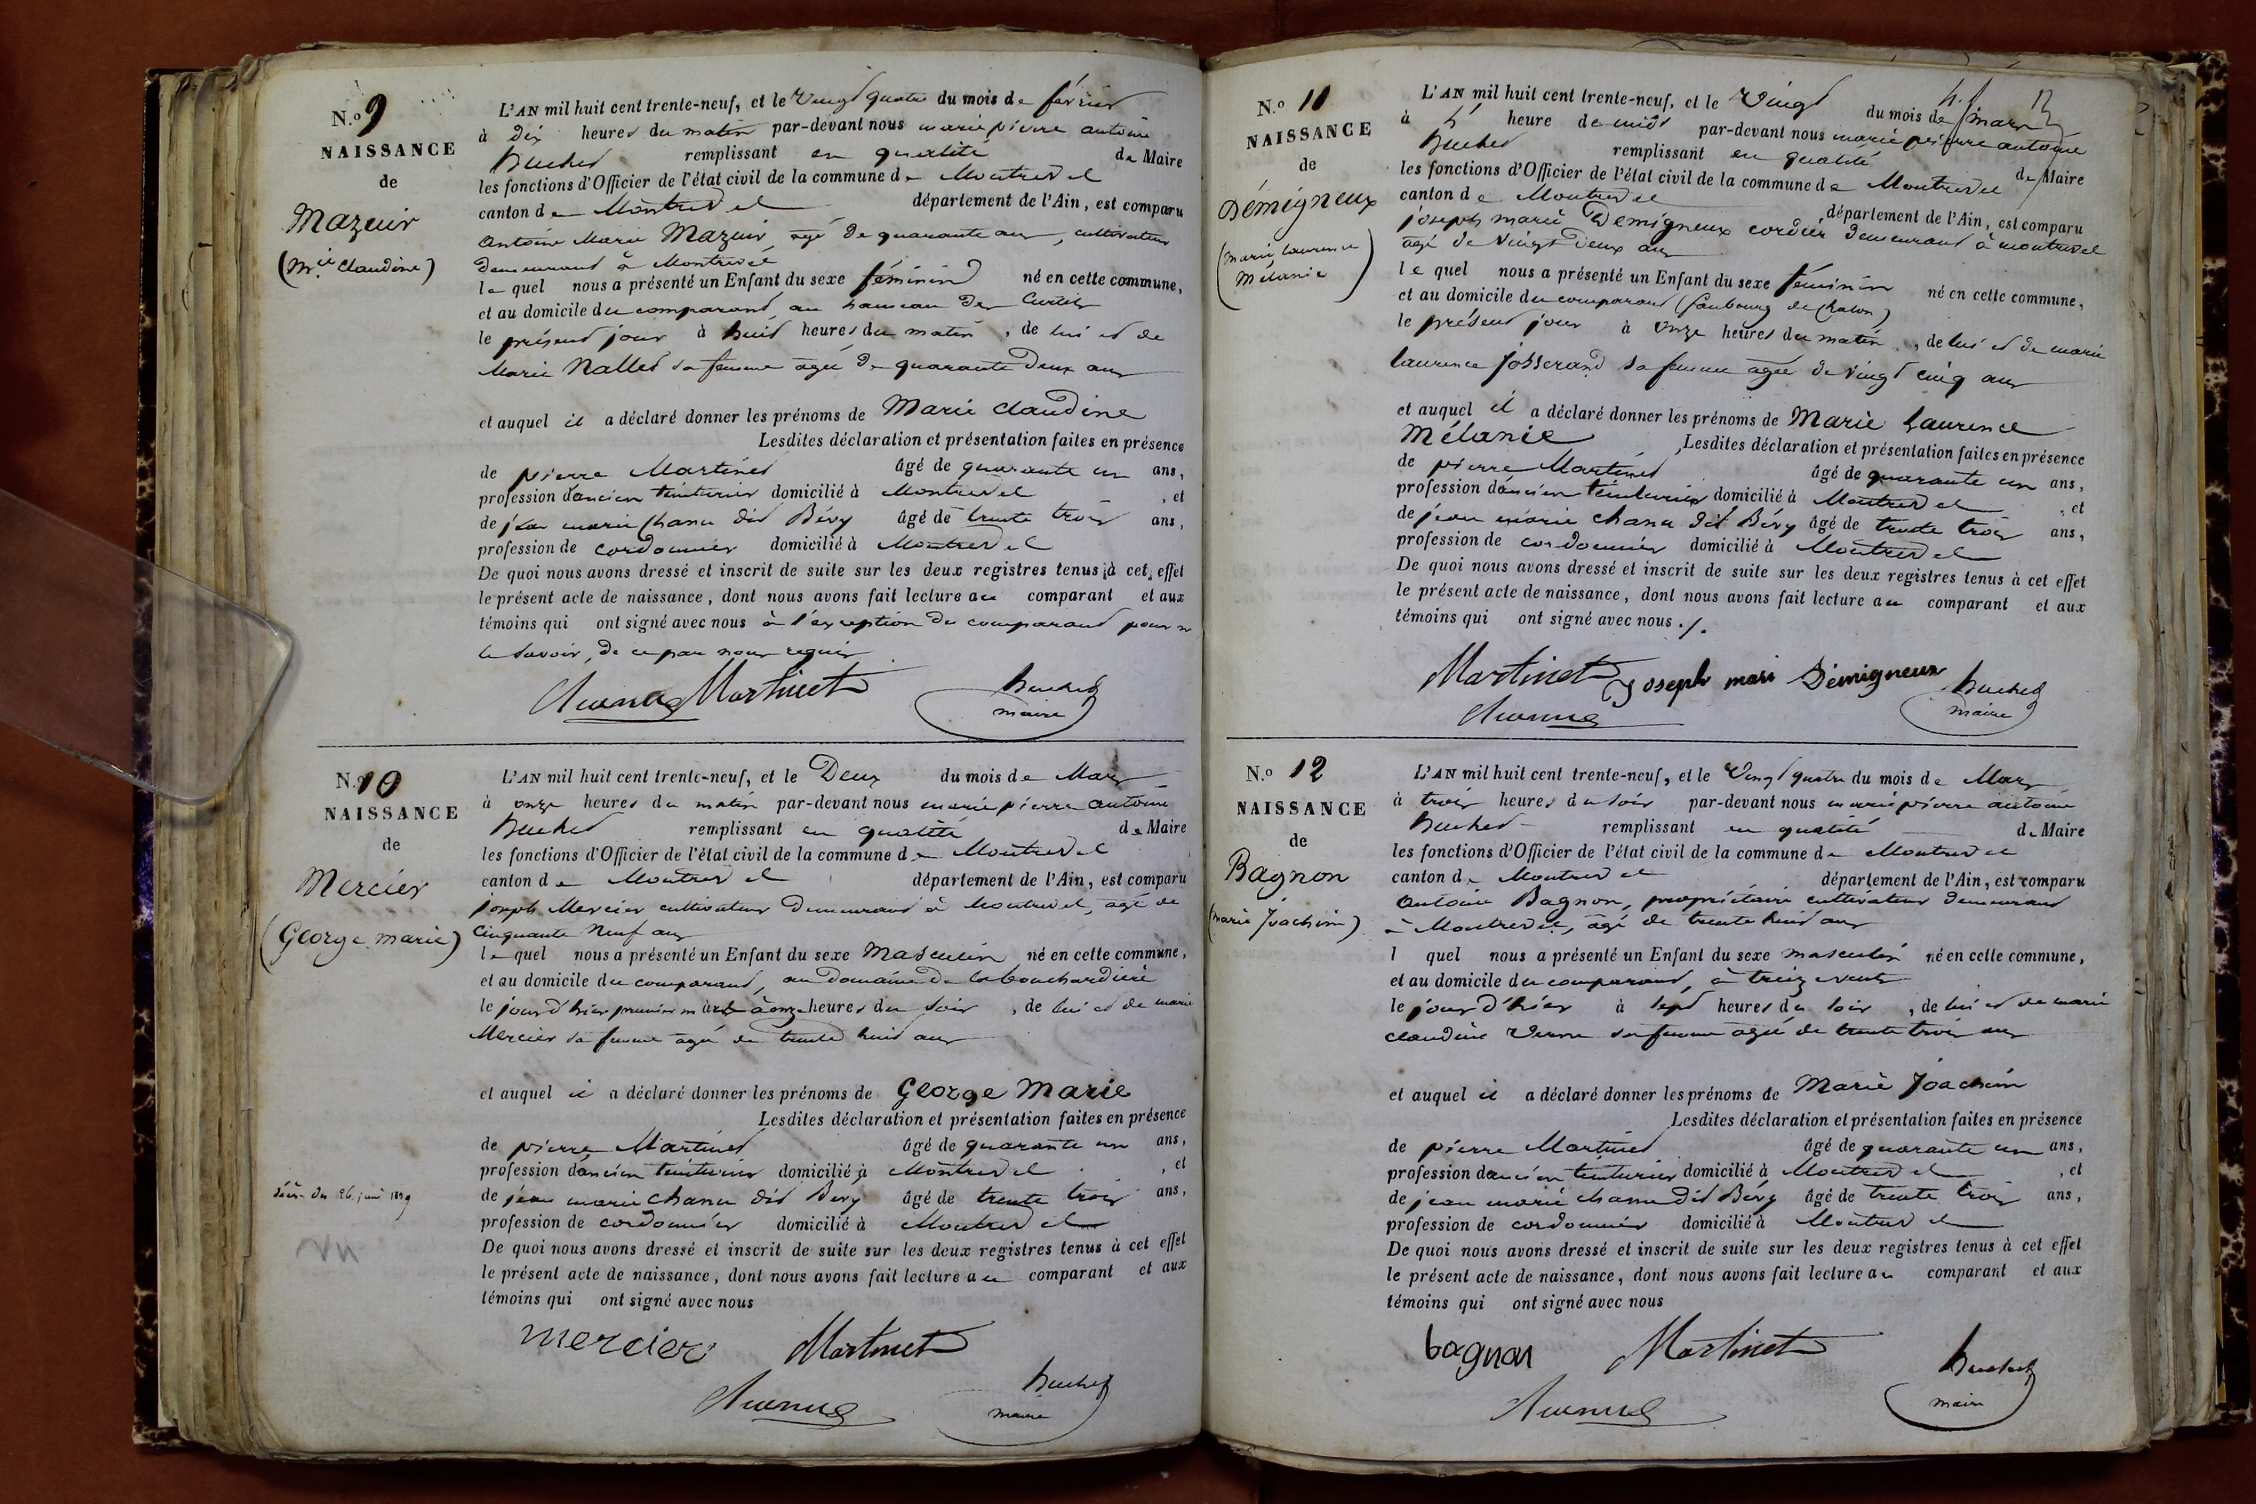 N.o 9
NAISSANCE
de
Mazuir
(M.ie Claudine)
L'AN mil huit cent trente-neuf, et le Vingt quatre du mois de février
à dix heures du matin par-devant nous marie pierre antoine
huchet remplissant en qualité de Maire
les fonctions d'Officier de l'état civil de la commune de Montrevel
canton de Montrevel département de l'Ain, est comparu
Antoine Marie Mazuir, agé de quarante ans, cultivateur
demeurant à Montrevel
lequel nous a présenté un Enfant du sexe féminin né en cette commune,
et au domicile du comparant, au hameau de Curtil
le présent jour à huit heures du matin, de lui et de
Marie Nallet sa femme agée de quarante deux ans
et auquel il a déclaré donner les prénoms de Marie Claudine
Lesdites déclaration et présentation faites en présence
de pierre Martinet âgé de quarante un ans,
profession d'ancien teinturier domicilié à Montrevel, et
de jean marie Chanu dit Bévy âgé de trente trois ans,
profession de cordonnier domicilié à Montrevel
De quoi nous avons dressé et inscrit de suite sur les deux registres tenus à cet effet
le présent acte de naissance, dont nous avons fait lecture au comparant et aux
témoins qui ont signé avec nous à l'exception du comparant pour ne
le savoir, de ce par nous requis
Martinet huchet
maire
N.o 10
NAISSANCE
de
Mercier
(George marie)
décès du 26 juin 1839
Vu
L'AN mil huit cent trente-neuf, et le Deux du mois de Mars
à onze heures du matin par-devant nous marie pierre antoine
huchet remplissant en qualité de Maire
les fonctions d'Officier de l'état civil de la commune de Montrevel
canton de Montrevel département de l'Ain, est comparu
joseph Mercier cultivateur demeurant à Montrevel, agé de
cinquante neuf ans
lequel nous a présenté un Enfant du sexe Masculin né en cette commune,
et au domicile du comparant, au domaine de la bouchardière
le jour d'hier premier mars à onze heures du soir, de lui et de marie
Mercier sa femme agée de trente huit ans
et auquel il a déclaré donner les prénoms de George Marie
Lesdites déclaration et présentation faites en présence
de pierre Martinet âgé de quarante un ans,
profession d'ancien teinturier domicilié à Montrevel, et
de jean marie Chanu dit Bévy âgé de trente trois ans,
profession de cordonnier domicilié à Montrevel
De quoi nous avons dressé et inscrit de suite sur les deux registres tenus à cet effet
le présent acte de naissance, dont nous avons fait lecture au comparant et aux
témoins qui ont signé avec nous
mercier Martinet
huchet
maire
N.o 11
NAISSANCE
de
Démigneux
(marie laurence
Mélanie)
L'AN mil huit cent trente-neuf, et le Vingt du mois de mars
à heure de midi par-devant nous marie pierre antoine
huchet remplissant en qualité de Maire
les fonctions d'Officier de l'état civil de la commune de Montrevel
canton de Montrevel département de l'Ain, est comparu
joseph marie Démigneux cordier demeurant à montrevel
agé de vingt deux ans
lequel nous a présenté un Enfant du sexe féminin né en cette commune,
et au domicile du comparant (faubourg de chalon)
le présent jour à onze heures du matin, de lui et de marie
laurence Josserand sa femme agée de vingt cinq ans
et auquel il a déclaré donner les prénoms de Marie Laurence
Mélanie Lesdites déclaration et présentation faites en présence
de pierre Martinet âgé de quarante un ans,
profession d'ancien teinturier domicilié à Montrevel, et
de jean marie Chanu dit Bévy âgé de trente trois ans,
profession de cordonnier domicilié à Montrevel
De quoi nous avons dressé et inscrit de suite sur les deux registres tenus à cet effet
le présent acte de naissance, dont nous avons fait lecture au comparant et aux
témoins qui ont signé avec nous ./.
Martinet Joseph mari Démigneux huchet
maire
N.o 12
NAISSANCE
de
Bagnon
(marie Joachim)
L'AN mil huit cent trente-neuf, et le Vingt quatre du mois de Mars
à trois heures du soir par-devant nous marie pierre antoine
huchet remplissant en qualité de Maire
les fonctions d'Officier de l'état civil de la commune de Montrevel
canton de Montrevel département de l'Ain, est comparu
Antoine Bagnon, propriétaire cultivateur demeurant
à Montrevel, agé de trente huit ans
l quel nous a présenté un Enfant du sexe masculin né en cette commune,
et au domicile du comparant, à treize vents
le jour d'hier à sept heures du soir, de lui et de marie
claudine Verne sa femme agée de trente trois ans
et auquel il a déclaré donner les prénoms de Marie Joachim
Lesdites déclaration et présentation faites en présence
de pierre Martinet âgé de quarante un ans,
profession d'ancien teinturier domicilié à Montrevel, et
de jean marie Chanu dit Bévy âgé de trente trois ans,
profession de cordonnier domicilié à Montrevel
De quoi nous avons dressé et inscrit de suite sur les deux registres tenus à cet effet
le présent acte de naissance, dont nous avons fait lecture au comparant et aux
témoins qui ont signé avec nous
bagnon Martinet huchet
maire